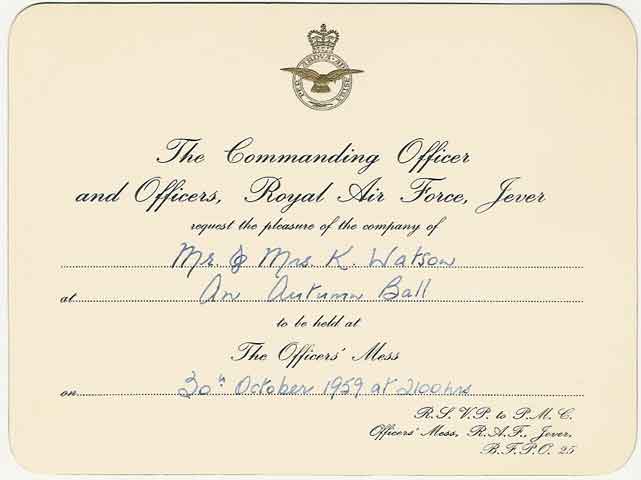 PER ARDVA AD ASTRA
The Commanding Officer
and Officers, Royal Air Force, Jever
request the pleasure of the company of
Mr. & Mrs. K. Watson
at An Autumn Ball
to be held at
The Officers' Mess
on 30th October 1959 at 2100hrs
R.S.V.P. to P.M.C.
Officers' Mess, R.A.F., Jever,
B.F.P.O. 25